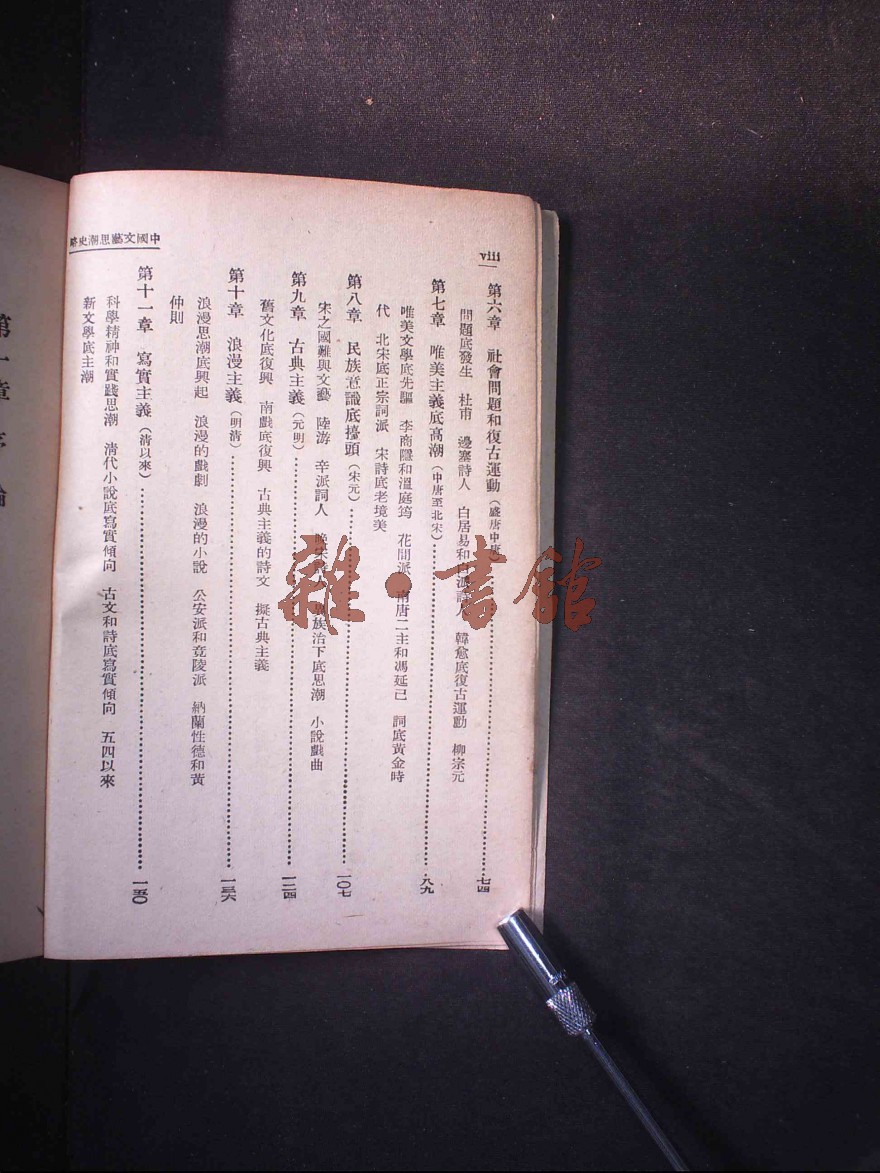 viii
中國文藝思潮史略
第六章 社會問題和復古運動（盛唐中唐）⋯⋯七四
問題底發生 杜甫 邊塞詩人 白居易和 韓愈底復古運動 柳宗元
第七章 唯美主義底高潮（中唐至北宋）⋯⋯八九
唯美文學底先驅 李商隱和溫庭筠 花間派 南唐二主和馮延已 詞底黃金時
代 北宋底正宗詞派 宋詩底老境美
第八章 民族意識底擡頭（宋元）⋯⋯一〇七
宋之國難與文藝 陸游 辛派詞人 晚宋 族治下底思潮 小說戲曲
第九章 古典主義（元明）⋯⋯一二四
舊文化底復興 南戲底復興 古典主義的詩文 擬古典主義
第十章 浪漫主義（明清）⋯⋯一三六
浪漫思潮底興起 浪漫的戲劇 浪漫的小說 公安派和竟陵派 納蘭性德和黃
仲則
第十一章 寫實主義（清以來）⋯⋯一五〇
科學精神和實踐思潮 清代小說底寫實傾向 古文和詩底寫實傾向 五四以來
新文學底主潮
第一章
雜·書館